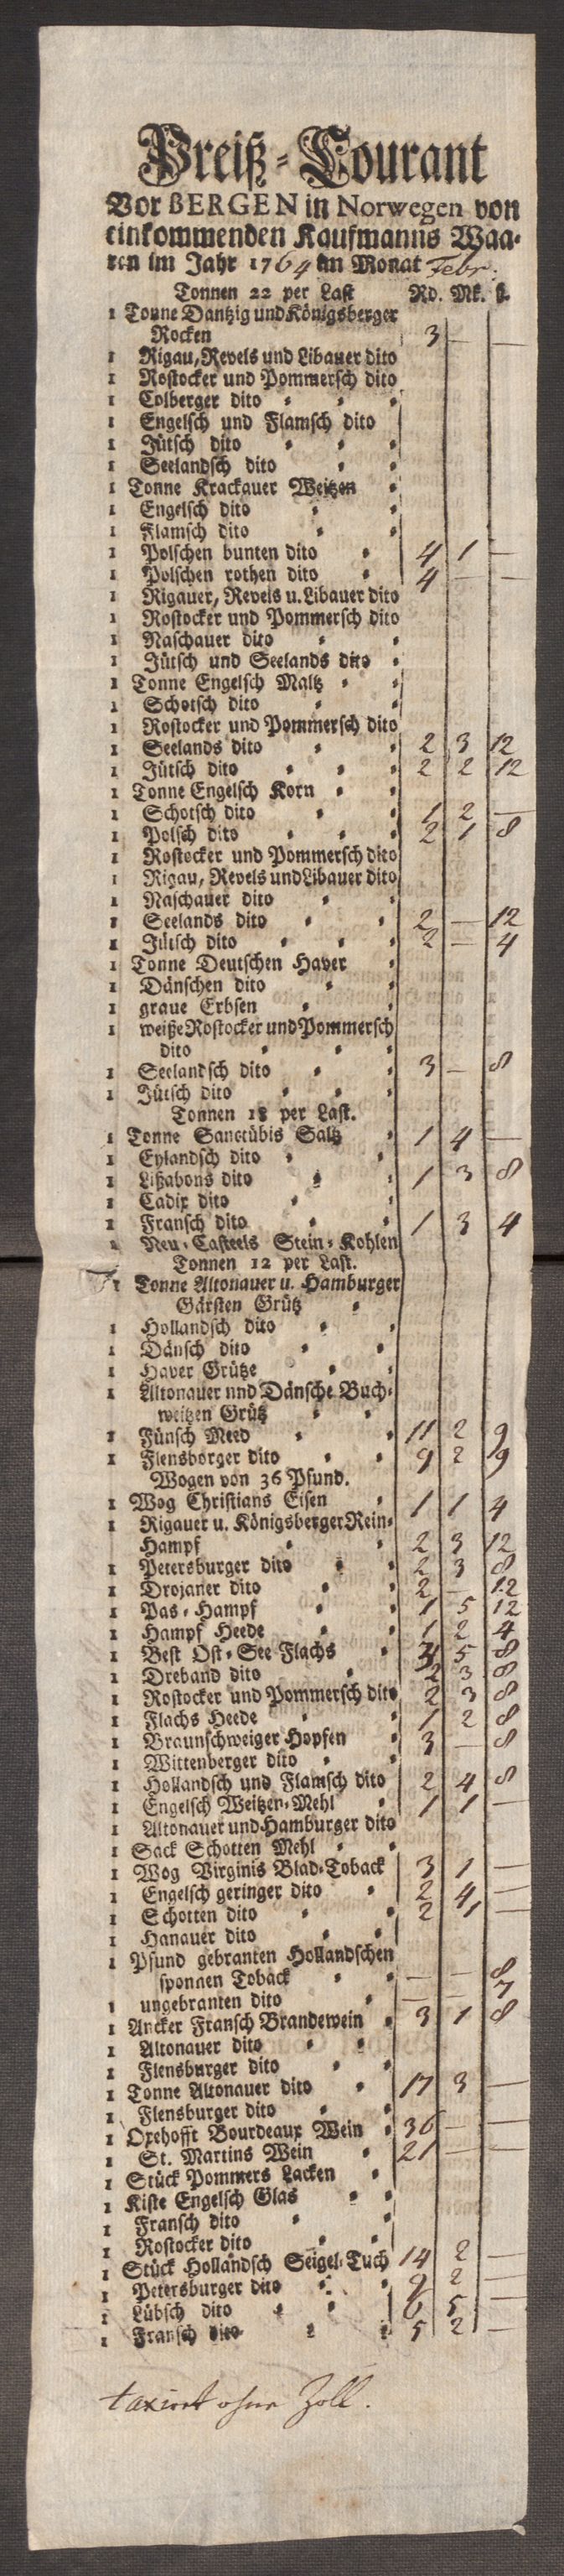 Preiß-Courant
Vor BERGEN in Norwegen von
einkommenden Kaufmanns Waa-
ren im Jahr 1764 im Monat Febr.
Tonnen 22 per Last Rd. Mk. ß.
1 Tonne Dantzig und Königsberger
Rocken 3 — —
1 Rigau, Revels und Libauer dito
1 Rostocker und Pommersch dito
1 Colberger dito
1 Engelsch und Flamsch dito
1 Jütsch dito
1 Seelandsch dito
1 Tonne Krackauer Weitzen
1 Engelsch dito
1 Flamsch dito
1 Polschen bunten dito 4 1 —
1 Polschen rothen dito 4 — —
1 Rigauer, Revels u. Libauer dito
1 Rostocker und Pommersch dito
1 Naschauer dito
1 Jütsch und Seelands dito
1 Tonne Engelsch Maltz
1 Schotsch dito
1 Rostocker und Pommersch dito
1 Seelands dito 2 3 12
1 Jütsch dito 2 2 12
1 Tonne Engelsch Korn
1 Schotsch dito 1 2 —
1 Polsch dito 2 1 8
1 Rostocker und Pommersch dito
1 Rigau, Revels und Libauer dito
1 Naschauer dito
1 Seelands dito 2 — 12
1 Jütsch dito 2 — 4
1 Tonne Deutschen Haver
1 Dänschen dito
1 graue Erbsen
1 weiße Rostocker und Pommersch
dito
1 Seelandsch dito 3 — 8
1 Jütsch dito
Tonnen 18 per Last.
1 Tonne Sanctübis Saltz 1 4 —
1 Eylandsch dito
1 Lißabons dito 1 3 8
1 Cadix dito
1 Fransch dito 1 3 4
1 Neu-Casteels Stein-Kohlen
Tonnen 12 per Last.
1 Tonne Altonauer u. Hamburger
Gärsten Grütz
1 Hollandsch dito
1 Dänsch dito
1 Haver Grütze
1 Altonauer nnd Dänsche Buch-
weitzen Grütz
1 Fünsch Meed 11 2 9
1 Flensborger dito 9 2 9
Wogen von 36 Pfund.
1 Wog Christians Eisen 1 1 4
1 Rigauer u. Königsberger Rein-
Hampf 2 3 12
1 Petersburger dito 2 3 8
1 Drojaner dito 2 — 12
1 Pas-Hampf 1 5 12
1 Hampf Heede 1 2 4
1 Best Ost-See Flachs 3 5 8
1 Dreband dito 2 3 8
1 Rostocker und Pommersch dito 2 3 8
1 Flachs Heede 1 2 8
1 Braunschweiger Hopfen 3 — 8
1 Wittenberger dito
1 Hollandsch und Flamsch dito 2 4 8
1 Engelsch Weitzen-Mehl 1 1 —
1 Altonauer und Hamburger dito
1 Sack Schotten Mehl
1 Wog Virginis Blad-Toback 3 1 —
1 Engelsch geringer dito 2 4 —
1 Schotten dito 2 1 —
1 Hanauer dito
1 Pfund gebranten Hollandschen
sponnen Toback — — 8
1 ungebranten dito — — 7
1 Ancker Fransch Brandewein 3 1 8
1 Altonauer dito
1 Flensburger dito
1 Tonne Altonauer dito 17 3 —
1 Flensburger dito
1 Oxehofft Bourdeaux Wein 36 — —
1 St. Martins Wein 21 — —
1 Stück Pommers Lacken
1 Kiste Engelsch Glas
1 Fransch dito
1 Rostocker dito
1 Stück Hollandsch Seigel-Tuch 14 2 —
1 Petersburger dito 9 2 —
1 Lübsch dito 6 5 —
1 Fransch dito 5 2 —
taxirt ohne Zoll.